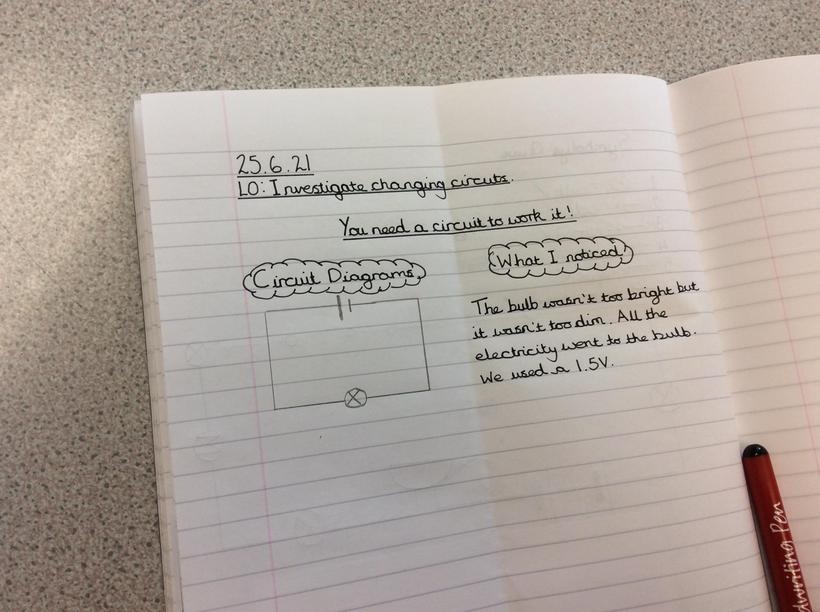 25.6.21
LO: Investigate changing circuts.
You need a circuit to work it!
Circuit Diagrams
What I noticed
The bulb wasn't too bright but
it wasn't too dim. All the
electricity went to the bulb.
We used a 1.5V.
writing Pen